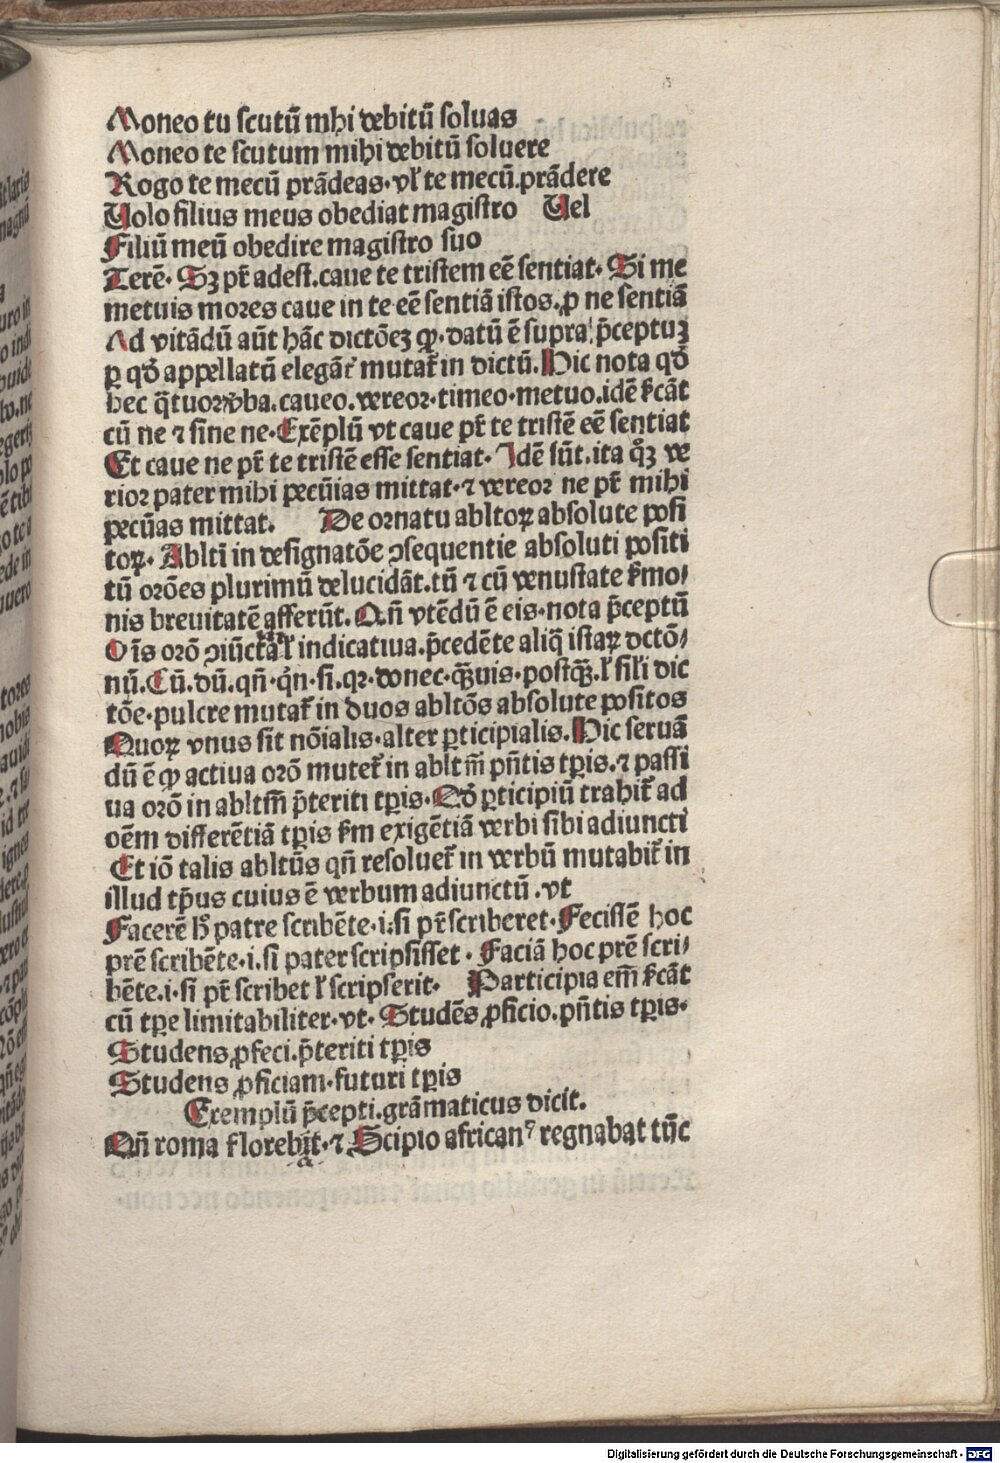 Moneo tu scutū mhi debitū soluas
Moneo te scutum mihi debitū soluere
Rogo te mecū prādeas·vl' te mecū.prādere
Uolo filius meus obediat magistro Uel
Filiū meū obedire magistro suo
Terē· Sꝫ pr̄ adest.caue te tristem eē sentiat· Si me
metuis mores caue in te eē sentiā istos.ꝓ ne sentiā
Ad vitādū aūt hāc dictōeꝫ ꝙ·datū ē supra p̄ceptuꝫ
ꝑ qd̄ appellatū elegāt̄ mutat̄ in dictū.Hic nota qd̄
hec q̄tuor v̄ba.caueo.vereor·timeo·metuo.idē st̄cāt
cū ne ⁊ sine ne·Exēplū vt caue pr̄ te tristē eē sentiat
Et caue ne pr̄ te tristē esse sentiat· Idē sūt.ita qꝫ ve
rior pater mihi pecūias mittat·⁊ vereor ne pr̄ mihi
pecūas mittat. De ornatu abltoꝝ absolute posi
toꝝ· Ablti in designatōe ꝯsequentie absoluti positi
tū orōes plurimū delucidāt.tū ⁊ cū venustate s̄mo/
nis breuitatē afferūt.Qn̄ vtēdū ē eis·nota p̄ceptū
Oīs orō ꝯiūcta l' indicatiua.p̄cedēte aliq̄ istaꝝ dctō/
nū.Cū.dū.qn̄·qn̄·si.qꝛ·donec·q̄uis·postq̄ꝫ.l' sili dic
tōe·pulcre mutat̄ in duos abltōs absolute positos
Quoꝝ vnus sit nōialis·alter ꝑticipialis.Hic seruā
dū ē ꝙ actiua orō mutet̄ in abltm̄ pn̄tis tꝑis.⁊ passi
ua orō in abltm̄ p̄teriti tꝑis·Qd̄ ꝑticipiū trahit̄ ad
oēm differētiā tꝑis s̄m exigētiā verbi sibi adiuncti
Et iō talis abltūs qn̄ resoluet̄ in verbū mutabit̄ in
illud tp̄us cuius ē verbum adiunctū .vt
Facerē h̄ patre scribēte·i.si pr̄ scriberet·Fecissē hoc
prē scribēte·i.si pater scripsisset · Faciā hoc prē scri/
bēte.i·si pr̄ scribet l' scripserit· Participia em̄ st̄cāt
cū tꝑe limitabiliter·vt· Studēs ꝓficio.pn̄tis tꝑis·
Studens ꝓfeci.p̄teriti tꝑis
Studens ꝓficiam·futuri tꝑis
Exemplū p̄cepti.grāmaticus dicit.
Qn̄ roma florebat·⁊ Scipio africanꝰ regnabat tūc
Digitalisierung gefördert durch die Deutsche Forschungsgemeinschaft - DFG